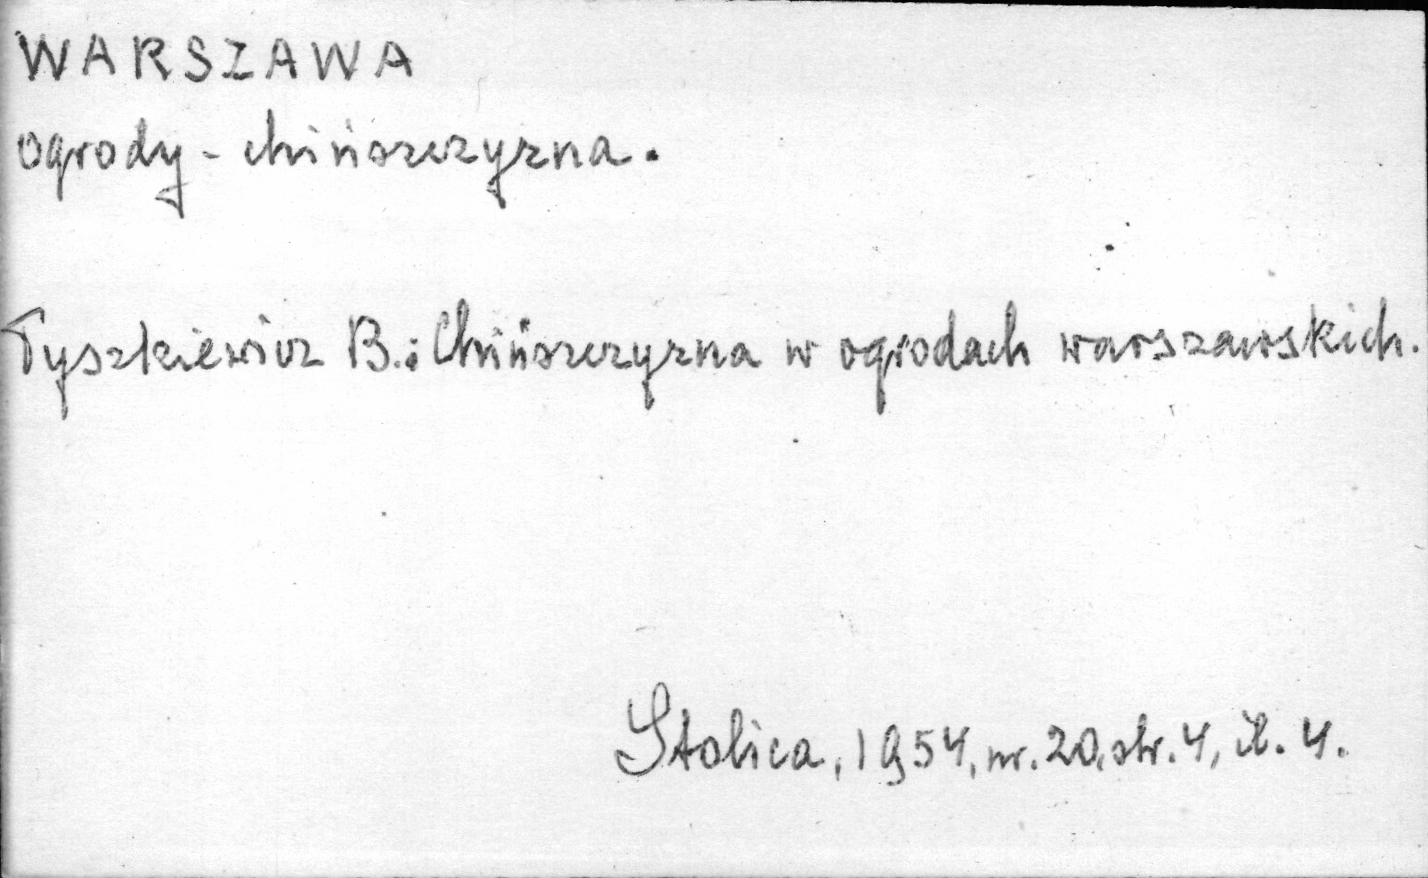 WARSZAWA
ogrody - chińszczyzna.
Tyszkiewicz B.: Chińszczyzna w ogrodach warszawskich.
Stolica, 1954, nr. 20, str. 4, il. 4.